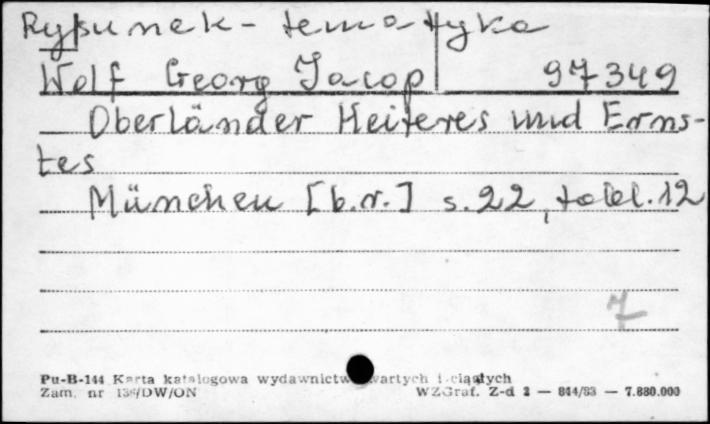 Rysunek - tematyka
Wolf Georg Jacop 97349
Oberländer Heiteres und Erns-
tes
München [b.r.] s. 22, tabl. 12
7
Pu-B-144 Karta katalogowa wydawnictw zwartych i ciągłych
Zam. nr /DW/ON WZGraf. Z-d 2 — 844/83 — 7.880.000